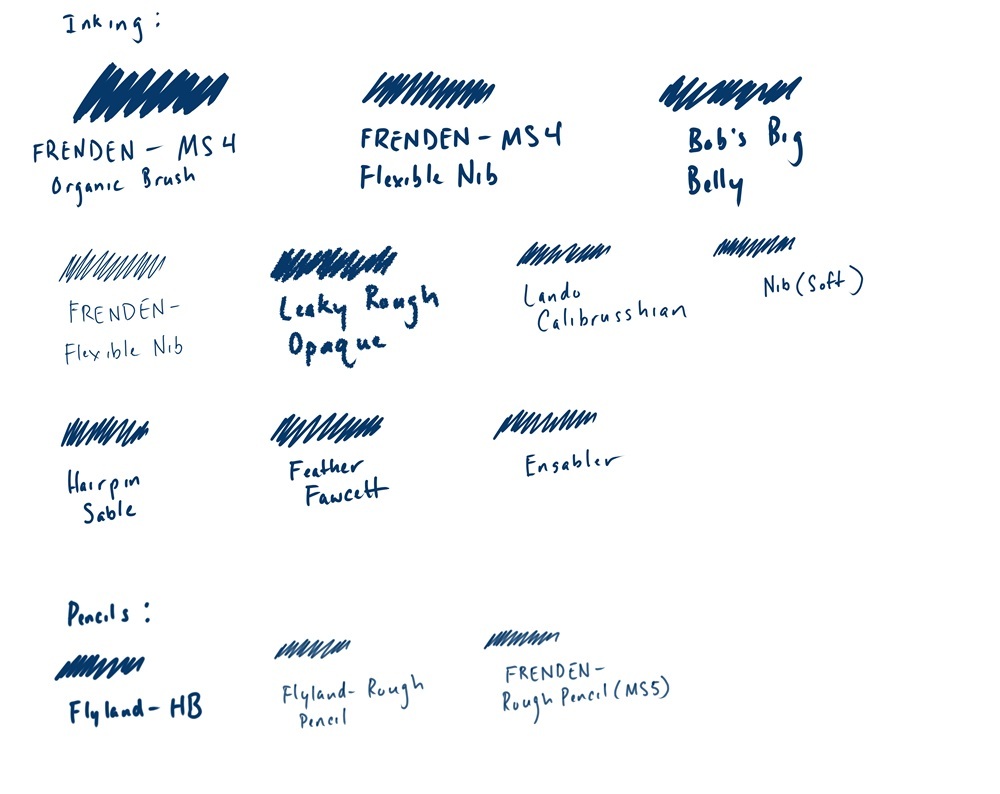 Inking:
FRENDEN - MS4
Organic Brush
FRENDEN - MS4
Flexible Nib
Bob's Big
Belly
FRENDEN-
Flexible Nib
Leaky Rough
Opaque
Lando
Calibrusshian
Nib (Soft)
Hairpin
Sable
Feather
Fawcett
Ensabler
Pencils:
Flyland-HB
Flyland-Rough
Pencil
FRENDEN-
Rough Pencil (MS5)